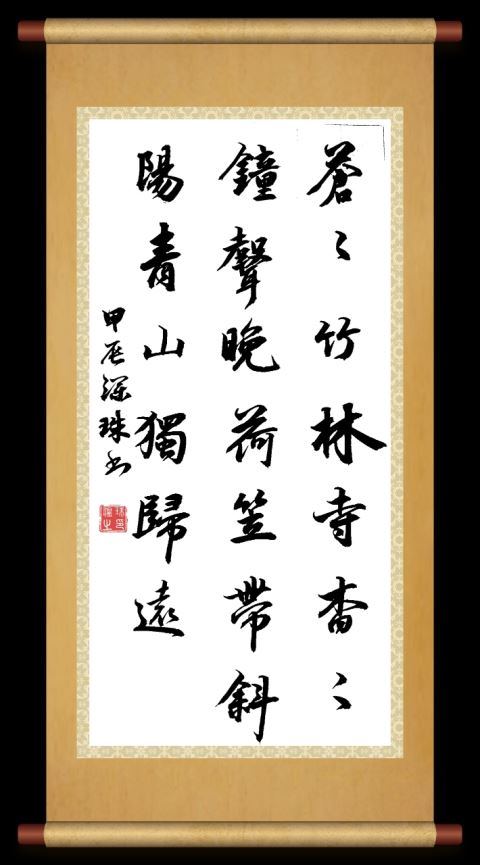 蒼〻竹林寺杳〻
鐘聲晚荷笠帶斜
陽青山獨歸遠
甲辰珠书